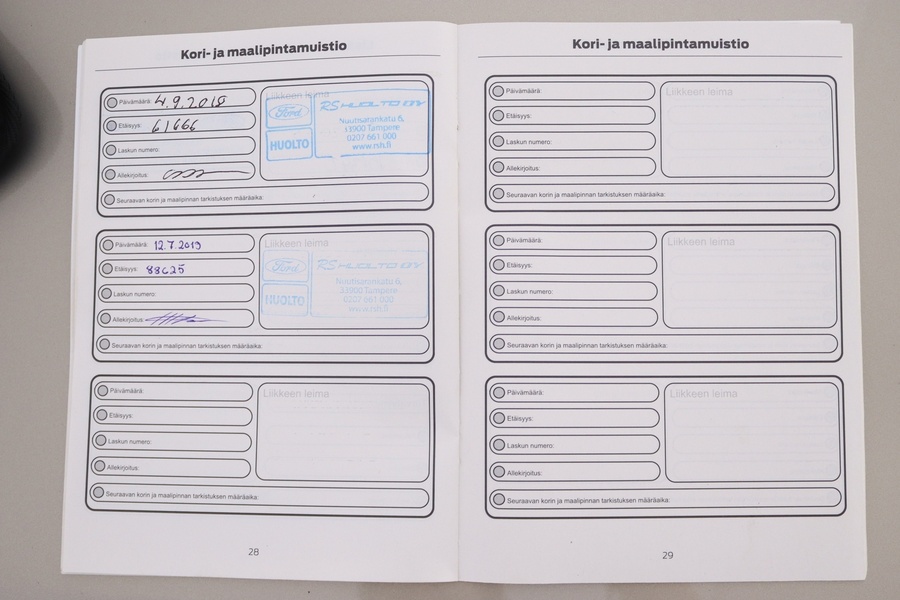 Kori- ja maalipintamuistio
Päivämäärä: 4.9.2018
Etäisyys: 61666
Laskun numero:
Allekirjoitus:
Seuraavan korin ja maalipinnan tarkistuksen määräaika:
Liikkeen leima
Ford
HUOLTO
RS HUOLTO OY
Nuutisarankatu 6,
33900 Tampere
0207 661 000
www.rsh.fi
Päivämäärä: 12.7.2019
Etäisyys: 88625
Laskun numero:
Allekirjoitus:
Seuraavan korin ja maalipinnan tarkistuksen määräaika:
Liikkeen leima
Ford
HUOLTO
RS HUOLTO OY
Nuutisarankatu 6,
33900 Tampere
0207 661 000
www.rsh.fi
Päivämäärä:
Etäisyys:
Laskun numero:
Allekirjoitus:
Seuraavan korin ja maalipinnan tarkistuksen määräaika:
Liikkeen leima
28
Kori- ja maalipintamuistio
Päivämäärä:
Etäisyys:
Laskun numero:
Allekirjoitus:
Seuraavan korin ja maalipinnan tarkistuksen määräaika:
Liikkeen leima
Päivämäärä:
Etäisyys:
Laskun numero:
Allekirjoitus:
Seuraavan korin ja maalipinnan tarkistuksen määräaika:
Liikkeen leima
Päivämäärä:
Etäisyys:
Laskun numero:
Allekirjoitus:
Seuraavan korin ja maalipinnan tarkistuksen määräaika:
Liikkeen leima
29